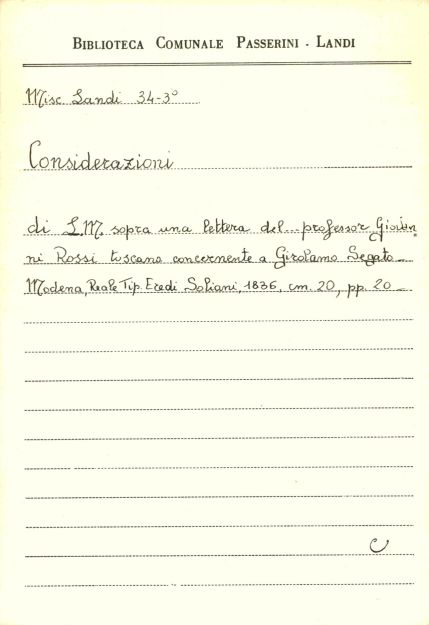 BIBLIOTECA COMUNALE PASSERINI - LANDI
Misc Landi 34-3°
Considerazioni
di L.M. sopra una lettera del professor Giovan
ni Rossi toscano concernente a Girolamo Segato
Modena, Reale Tip. Eredi Soliani, 1836, cm. 20, pp. 20
C